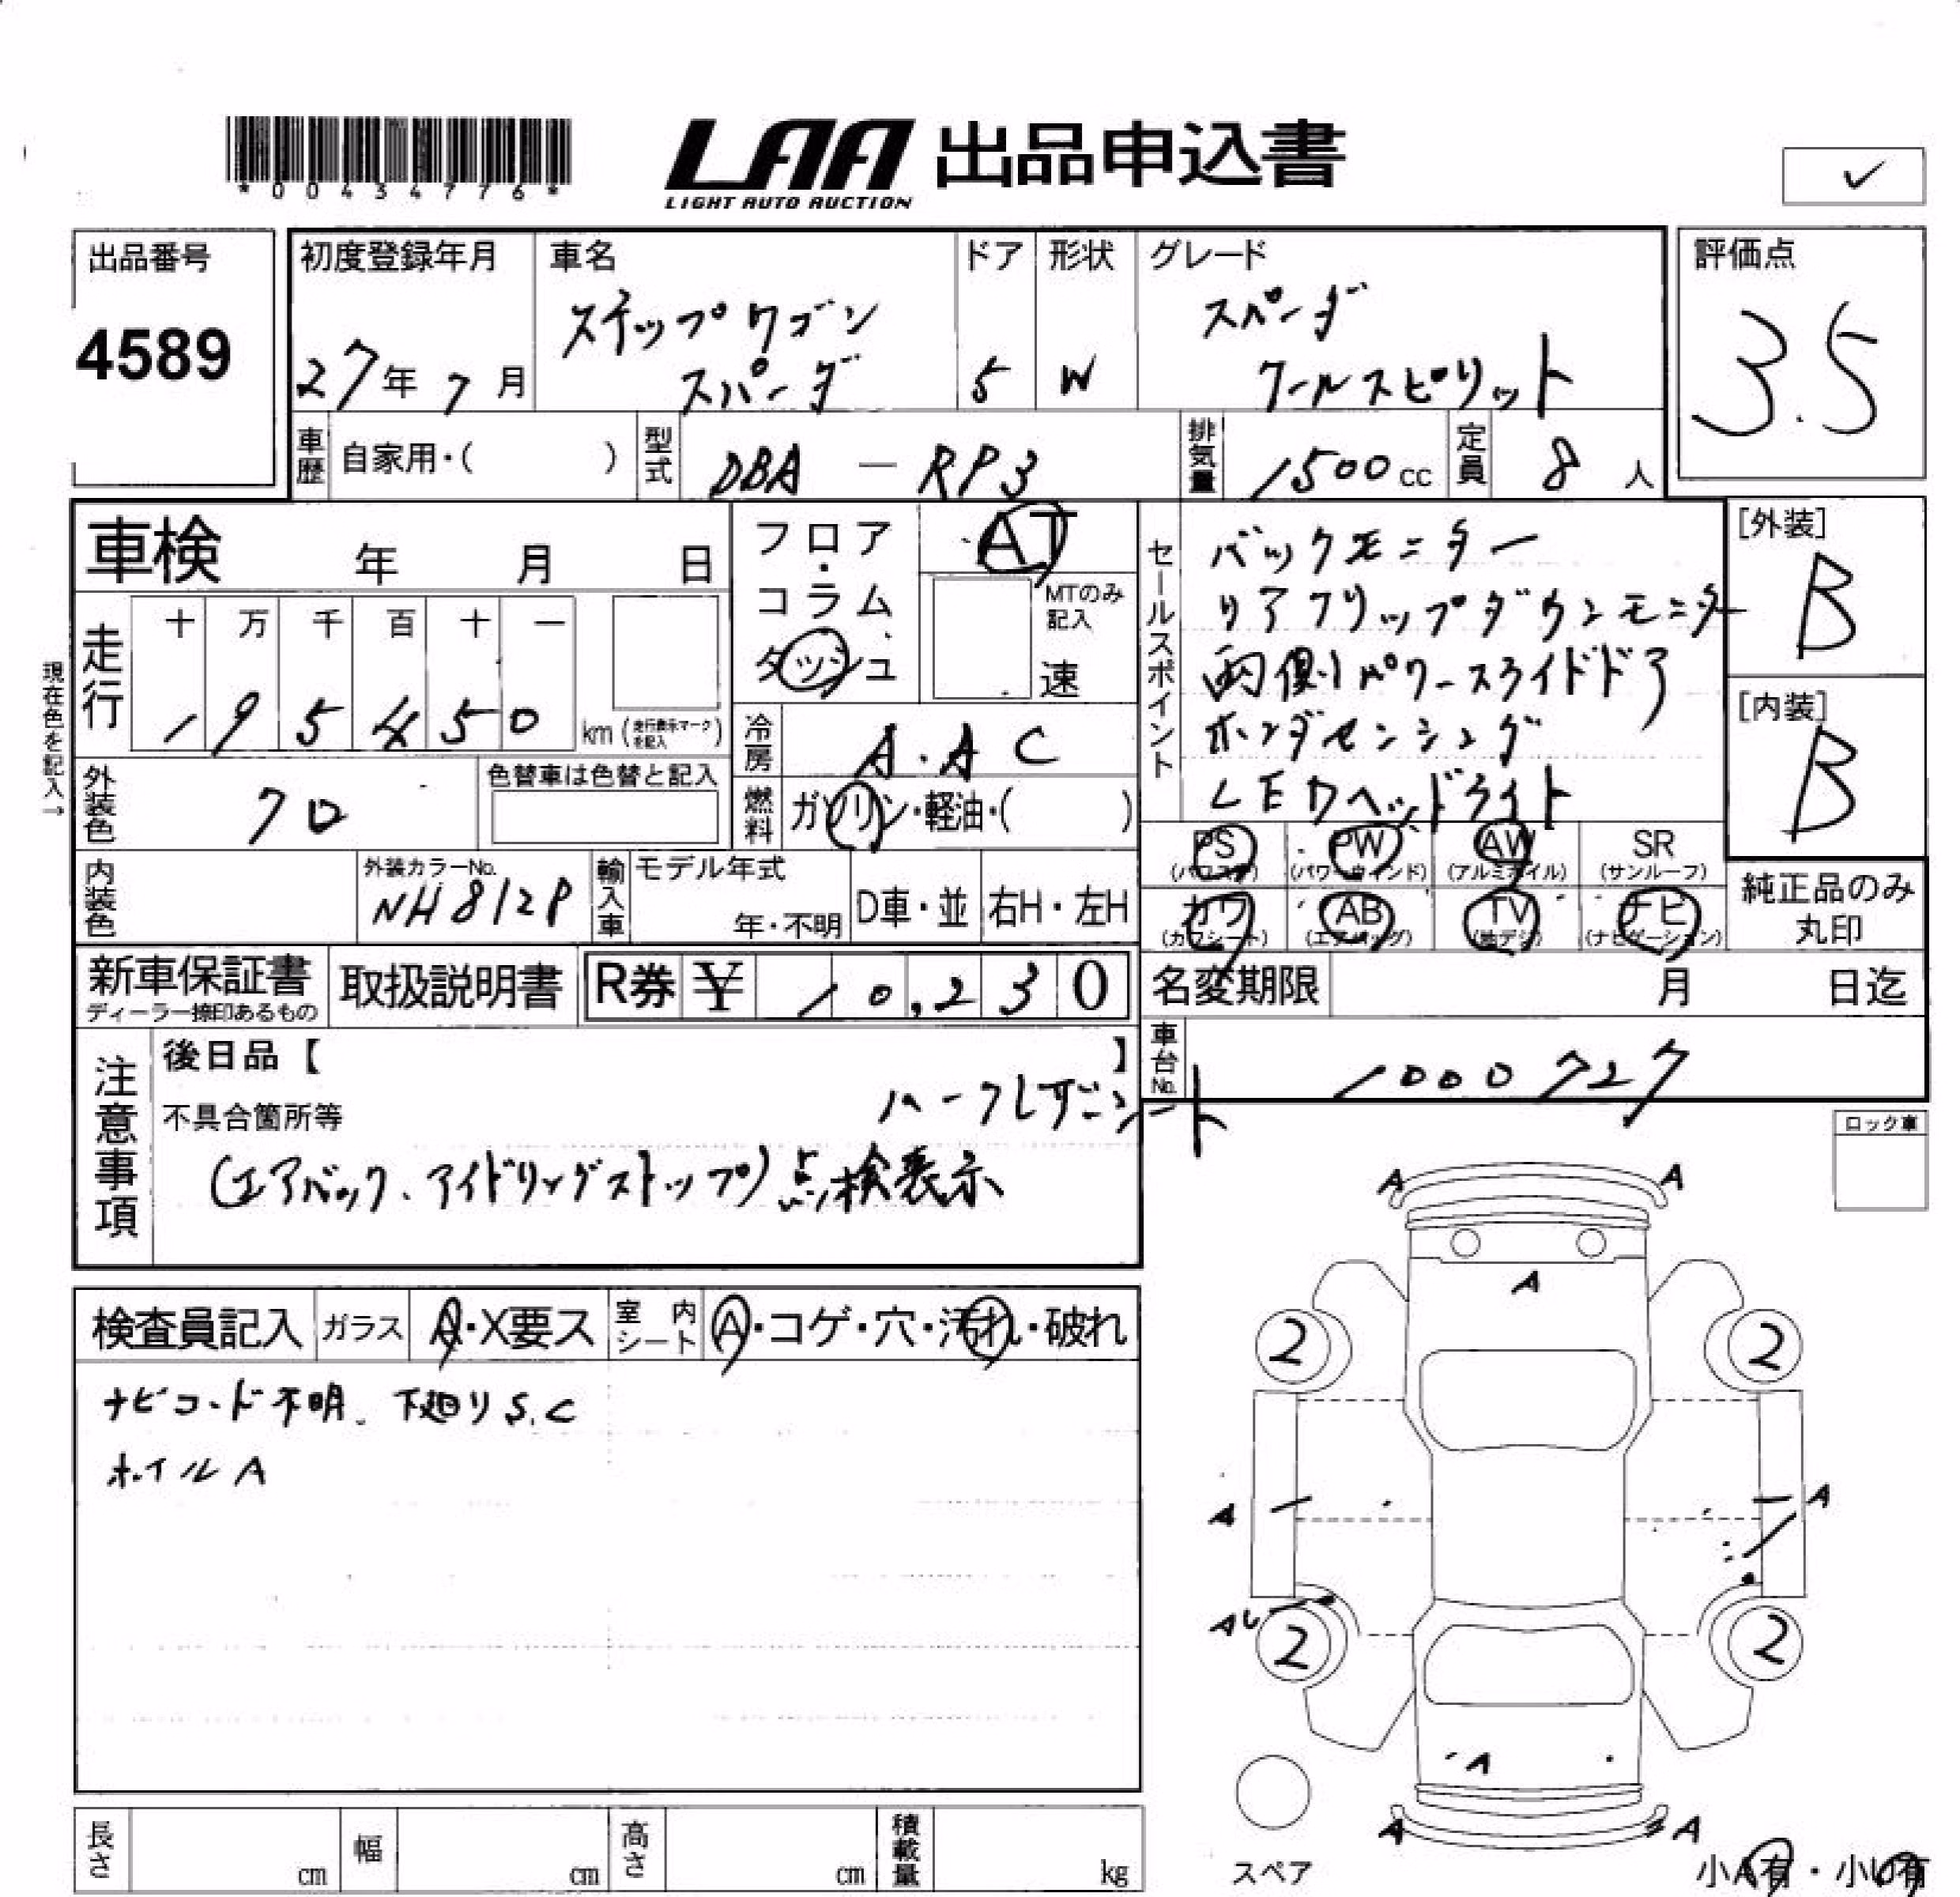 *00434776*
LAA 出品申込書
LIGHT AUTO AUCTION
出品番号
4589
初度登録年月
27年7月
車名
ステップワゴン
スパーダ
ドア
5
形状
W
グレード
スパーダ
クールスピリット
評価点
3.5
車歴 自家用・( )
型式 DBA - RP3
排気量 1500cc
定員 8人
車検 年 月 日
フロア・コラム ダッシュ
AT
MTのみ記入
速
セールスポイント
バックモニター
リアフリップダウンモニター
両側パワースライドドア
ホンダセンシング
LEDヘッドライト
[外装]
B
[内装]
B
現在色を記入→
走行 十 万 千 百 十 一
195450 km (走行表示マークを記入)
冷房 A.AC
外装色 クロ
色替車は色替と記入
燃料 ガソリン・軽油・( )
PS (パワステ) PW (パワーウィンド) AW (アルミホイル) SR (サンルーフ)
カワ (カワシート) AB (エアバッグ) TV (地デジ) ナビ (ナビゲーション)
純正品のみ
丸印
内装色
外装カラーNo.
NH812P
輸入車 モデル年式
年・不明 D車・並 右H・左H
新車保証書
ディーラー捺印あるもの
取扱説明書
R券 ¥ 10,230
名変期限 月 日迄
車台No. 1000727
注意事項
後日品【 】
ハーフレザーシート
不具合箇所等
(エアバック、アイドリングストップ)点検表示
ロック車
検査員記入 ガラス A・X要ス 室内シート A・コゲ・穴・汚れ・破れ
ナビコード不明、下廻りS.C
ホイルA
A A
A
2 2
A A
AU
2 2
A
A A
スペア
小A有・小U有
長さ cm 幅 cm 高さ cm 積載量 kg